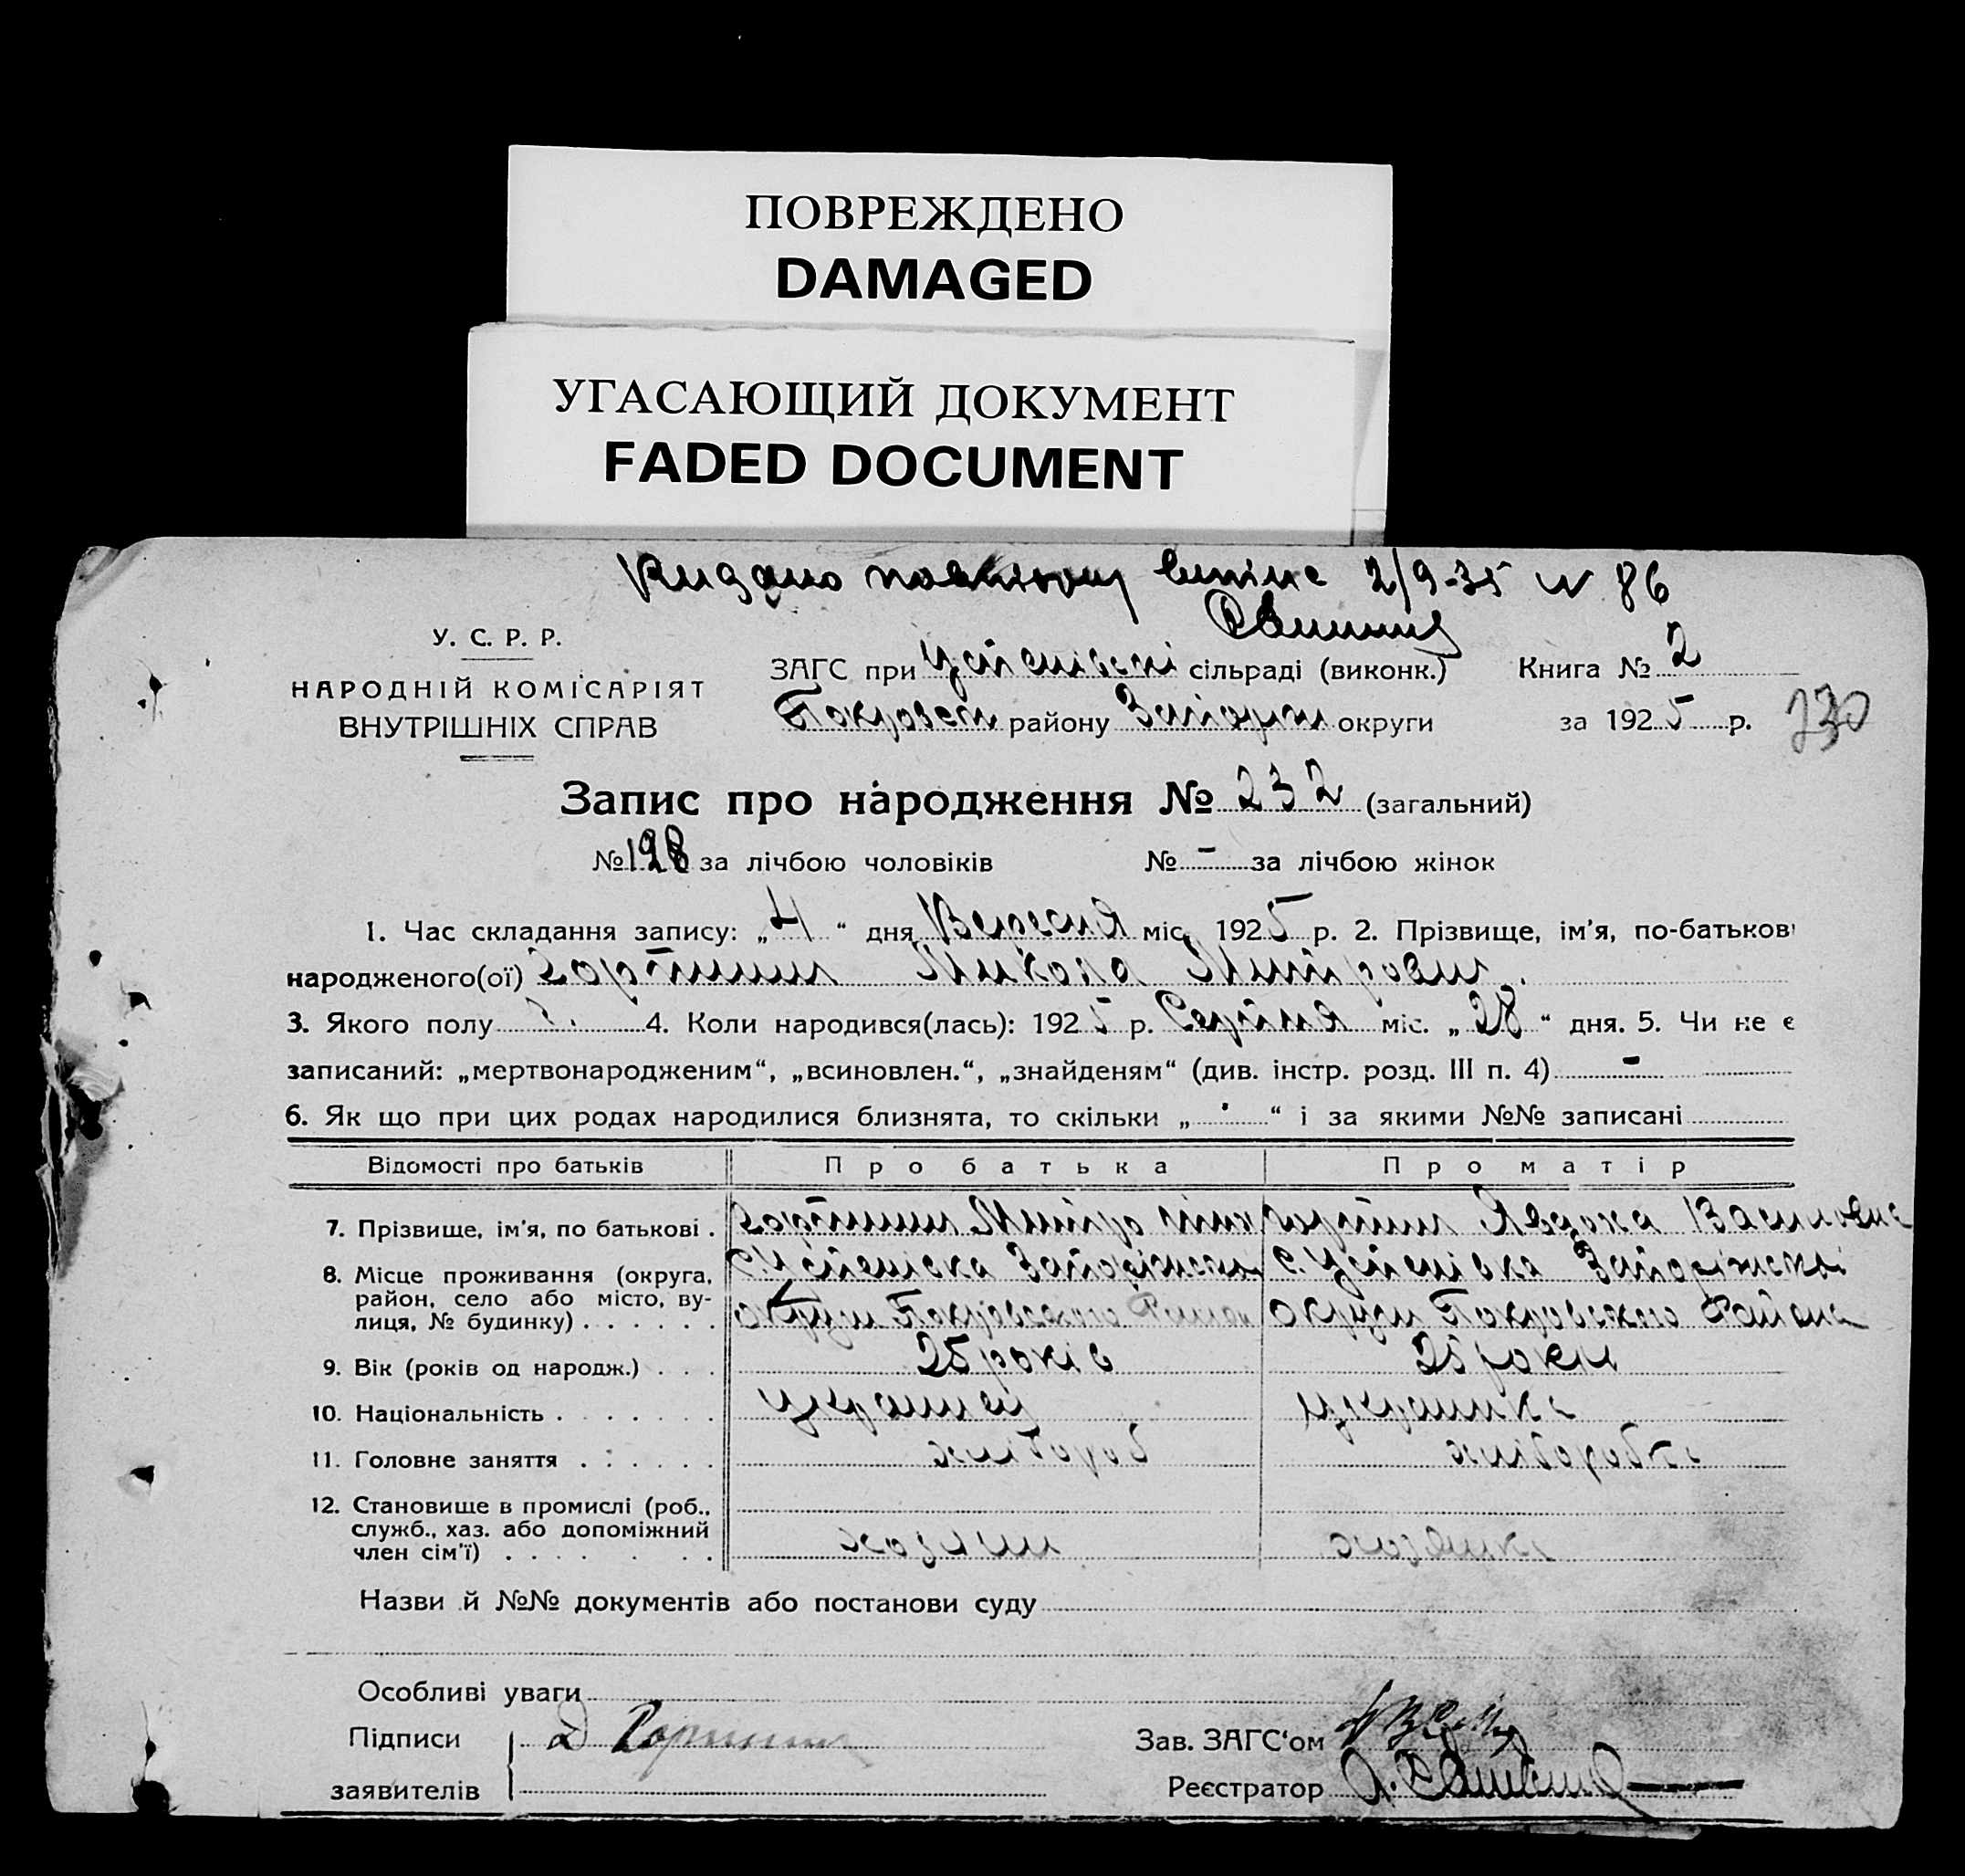 ПОВРЕЖДЕНО
DAMAGED
УГАСАЮЩИЙ ДОКУМЕНТ
FADED DOCUMENT
Видано повторну 2/9-35 № 86
У. С. Р. Р.
НАРОДНІЙ КОМІСАРІЯТ
ВНУТРІШНІХ СПРАВ
ЗАГС при Успенівські сільраді (виконк.) Книга № 2
Покровськ району Запоріжж округи за 1925 р. 230
Запис про народження № 232 (загальний)
№ 128 за лічбою чоловіків № - за лічбою жінок
1. Час складання запису: „4“ дня Вересня міс. 1925 р. 2. Прізвище, ім'я, по-батькові
народженого(ої) Микола Митрович
3. Якого полу 4. Коли народився(лась): 1925 р. Серпня міс. „28“ дня. 5. Чи не є
записаний: „мертвонародженим“, „всиновлен.“, „знайденям“ (див. інстр. розд. III п. 4) -
6. Як що при цих родах народилися близнята, то скільки „ “ і за якими №№ записані
Відомості про батьків Про батька Про матір
7. Прізвище, ім'я, по батькові . Митро Явдоха Василевна
8. Місце проживання (округа, район, село або місто, вулиця, № будинку) . . . . . .
с. Успенівка Запоріжська с. Успенівка Запоріжскої
округи Покровського Району округи Покровского Района
9. Вік (років од народж.) . . . 25 років 25 роки
10. Національність . . . . . . . українец українка
11. Головне заняття . . . . . . хлібороб хліборобка
12. Становище в промислі (роб., служб., хаз. або допоміжний член сім'ї) . . . . . . .
хозяин хозяйка
Назви й №№ документів або постанови суду
Особливі уваги
Підписи Д Зав. ЗАГС'ом
заявителів Реєстратор